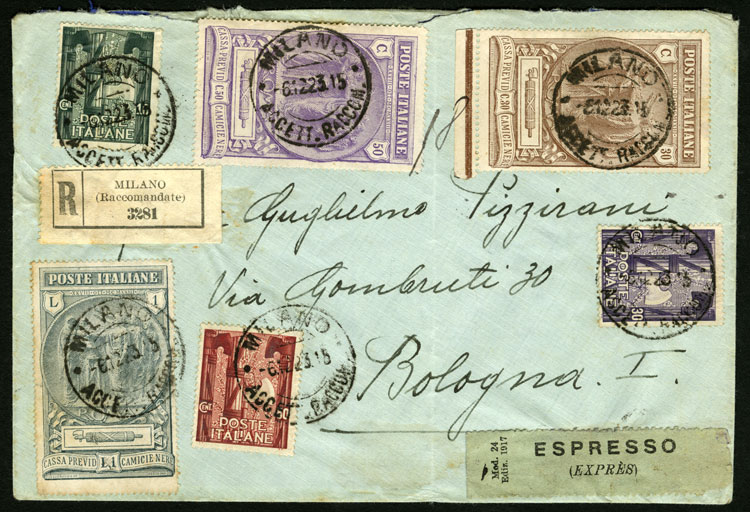 MILANO
ACCETT. RACCOM.
POSTE
ITALIANE
POSTE ITALIANE
C
50
CASSA PREVID C50 CAMICIE NERE
MILANO
-6.12.23.15
ACCETT. RACCOM.
POSTE ITALIANE
C
30
CASSA PREVID C30 CAMICIE NERE
MILANO
-6.12.23.15
ACCETT. RACCOM.
18
R
MILANO
(Raccomandate)
3281
Guglielmo Pizzirani
Via Gombruti 30
Bologna. I.
MILANO
POSTE
ITALIANE
30
POSTE ITALIANE
L
1
MILANO
-6.12.23.15
ACCETT. RACCOM.
CASSA PREVID L.1 CAMICIE NERE
MILANO
-6.12.23.15
ACCETT. RACCOM.
50
POSTE
ITALIANE
Mod. 24
Ediz. 1917
ESPRESSO
(EXPRÈS)